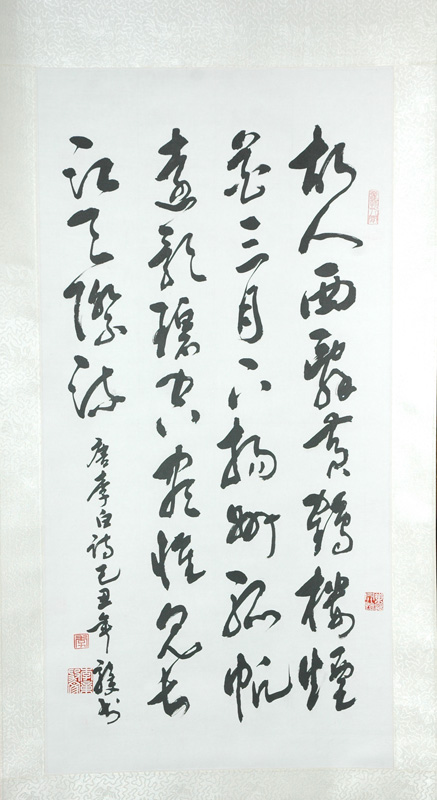 故人西辭黄鶴樓煙
花三月下揚州孤帆
遠影碧空盡惟見長
江天際流
唐李白詩己丑年書